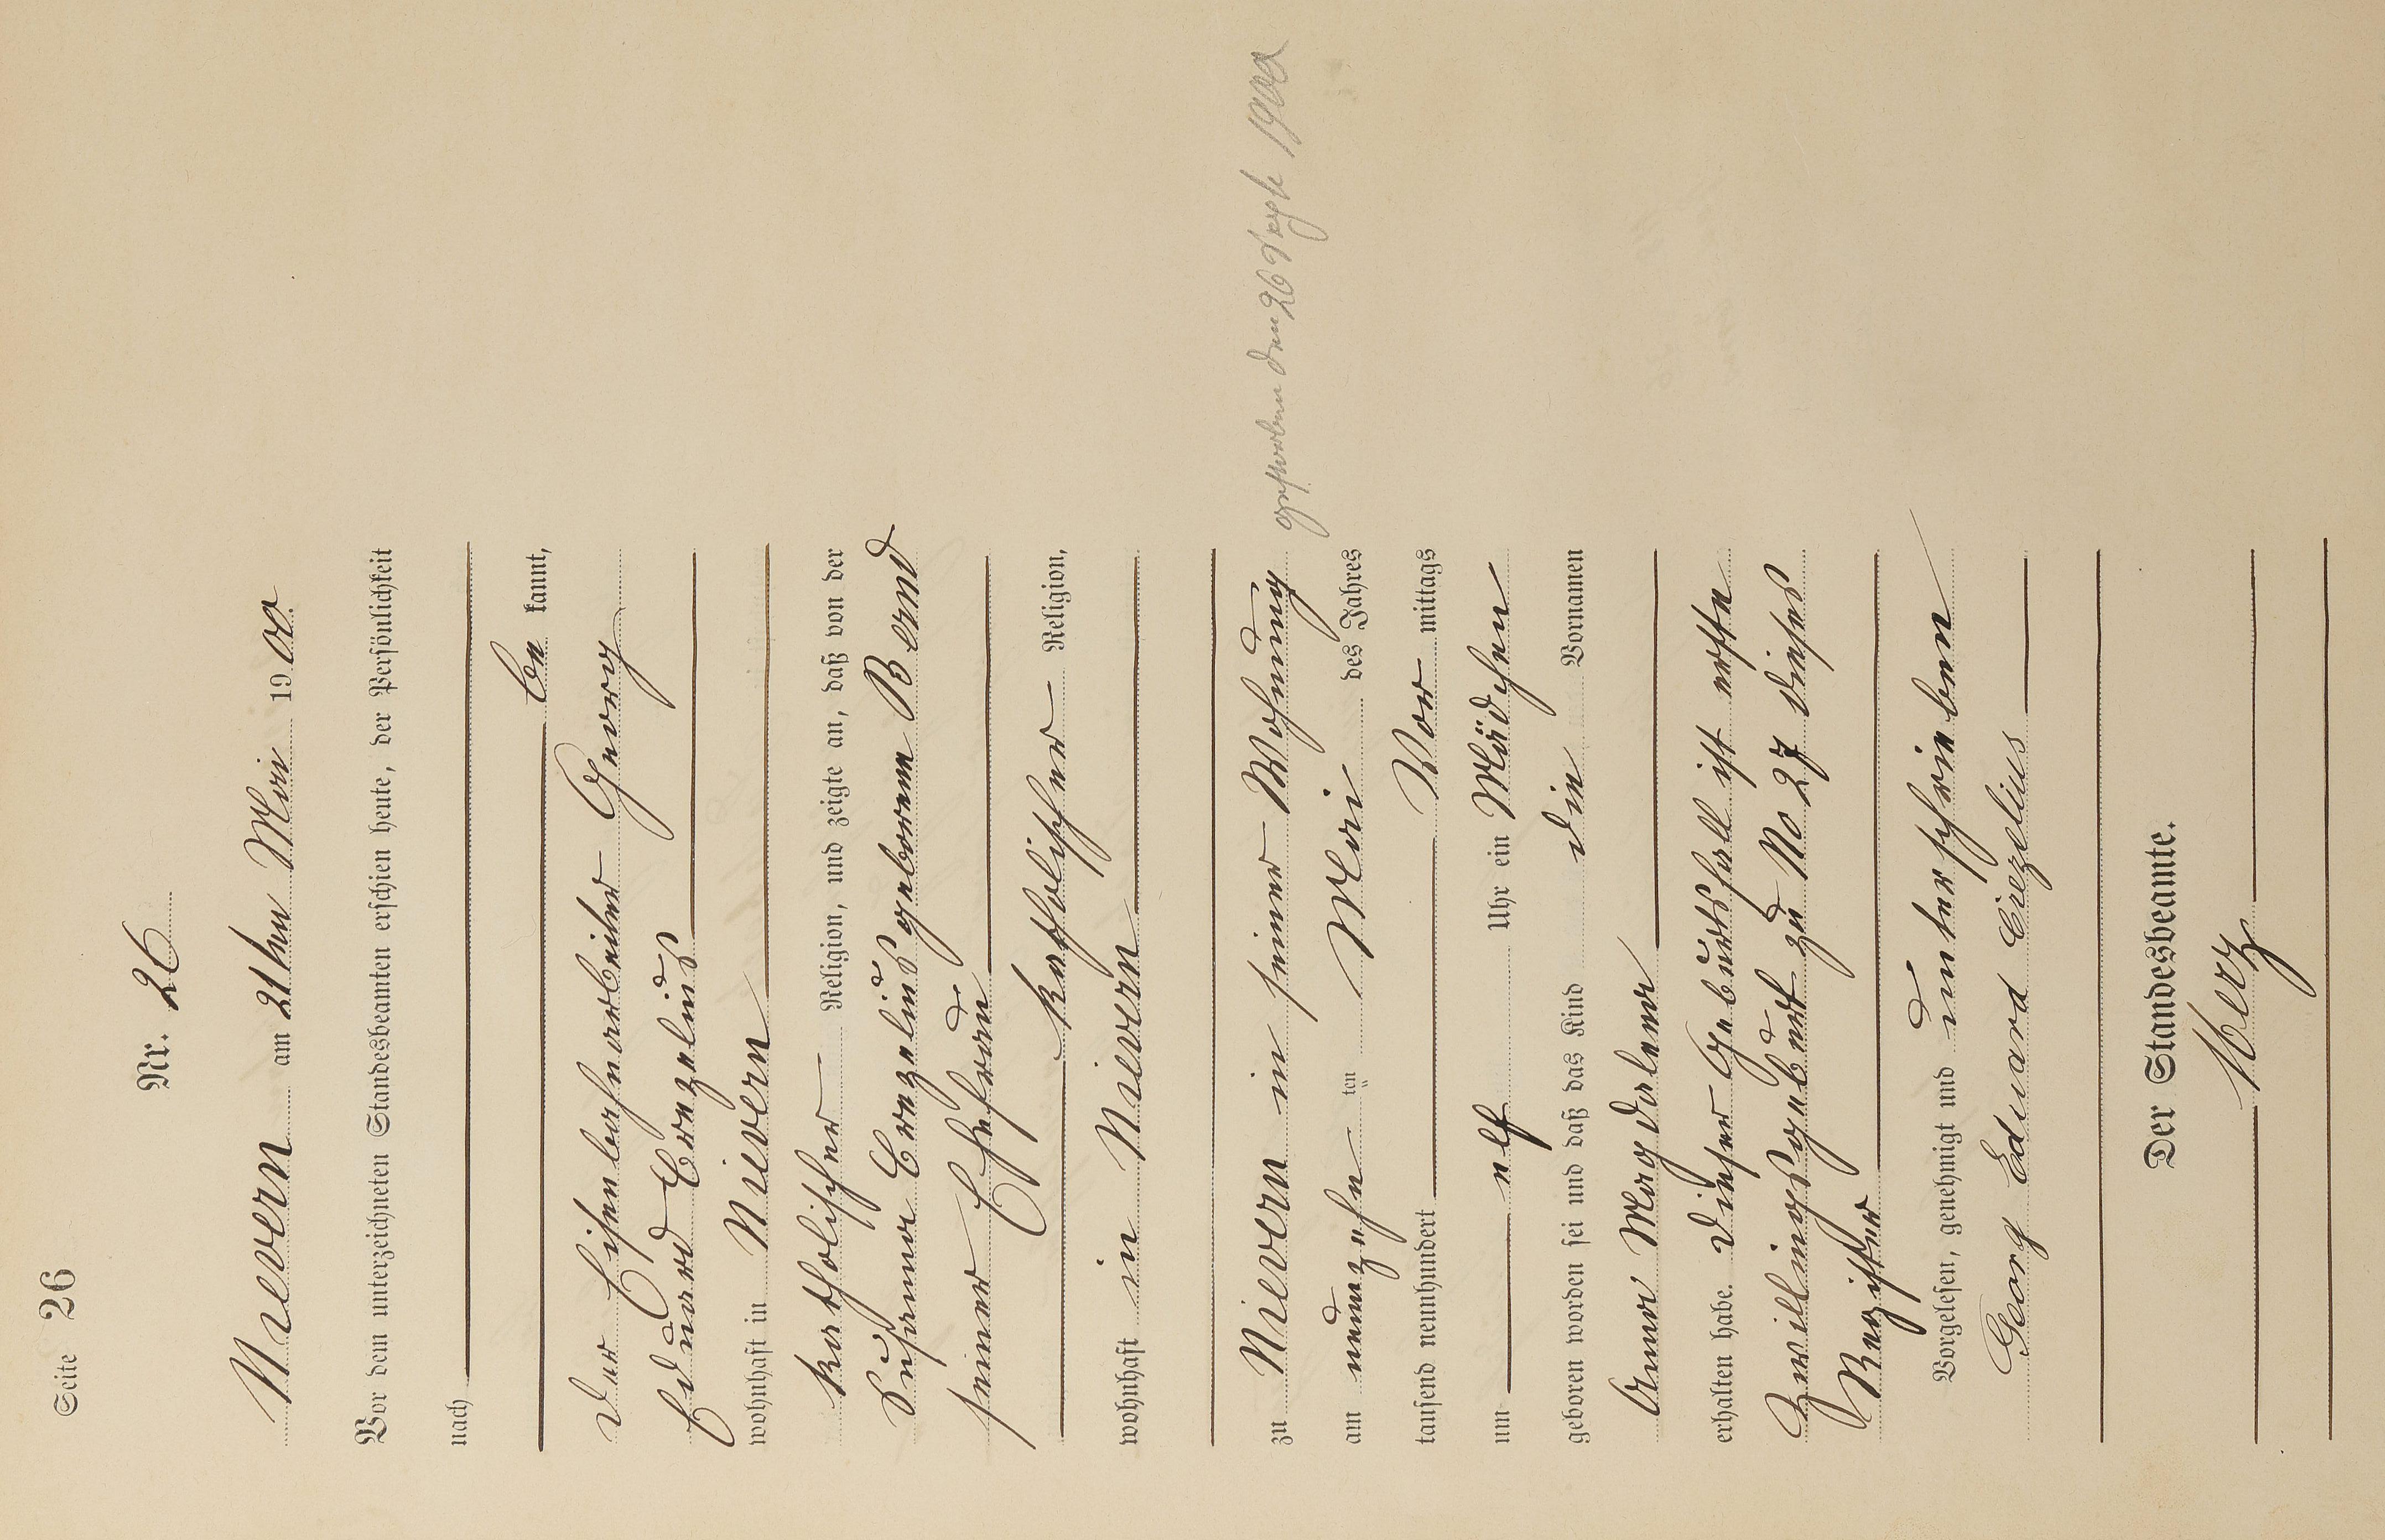 Seite 26
Nr. 26
Nievern am 21ten Mai 1900
Vor dem unterzeichneten Standesbeamten erschien heute, der Persönlichkeit
nach
be kannt,
der Eisenbahnarbeiter Georg
Eduard Crezelius
wohnhaft in Nievern
katholischer Religion, und zeigte an, daß von der
Susanna Crezelius geborenen Bernd
seiner Ehefrau
katholischer Religion,
wohnhaft in Nievern
zu Nievern in seiner Wohnung
gestorben den 26 Septe 1900
am neunzehn ten Mai des Jahres
tausend neunhundert Vor mittags
um elf Uhr ein Mädchen
geboren worden sei und daß das Kind die Vornamen
Anna Magdalena
erhalten habe. Dieser Geburtsfall ist erste
Zwillingsgeburt zu No 27 dieses
Register
Vorgelesen, genehmigt und unterschrieben
Georg Eduard Crezelius
Der Standesbeamte.